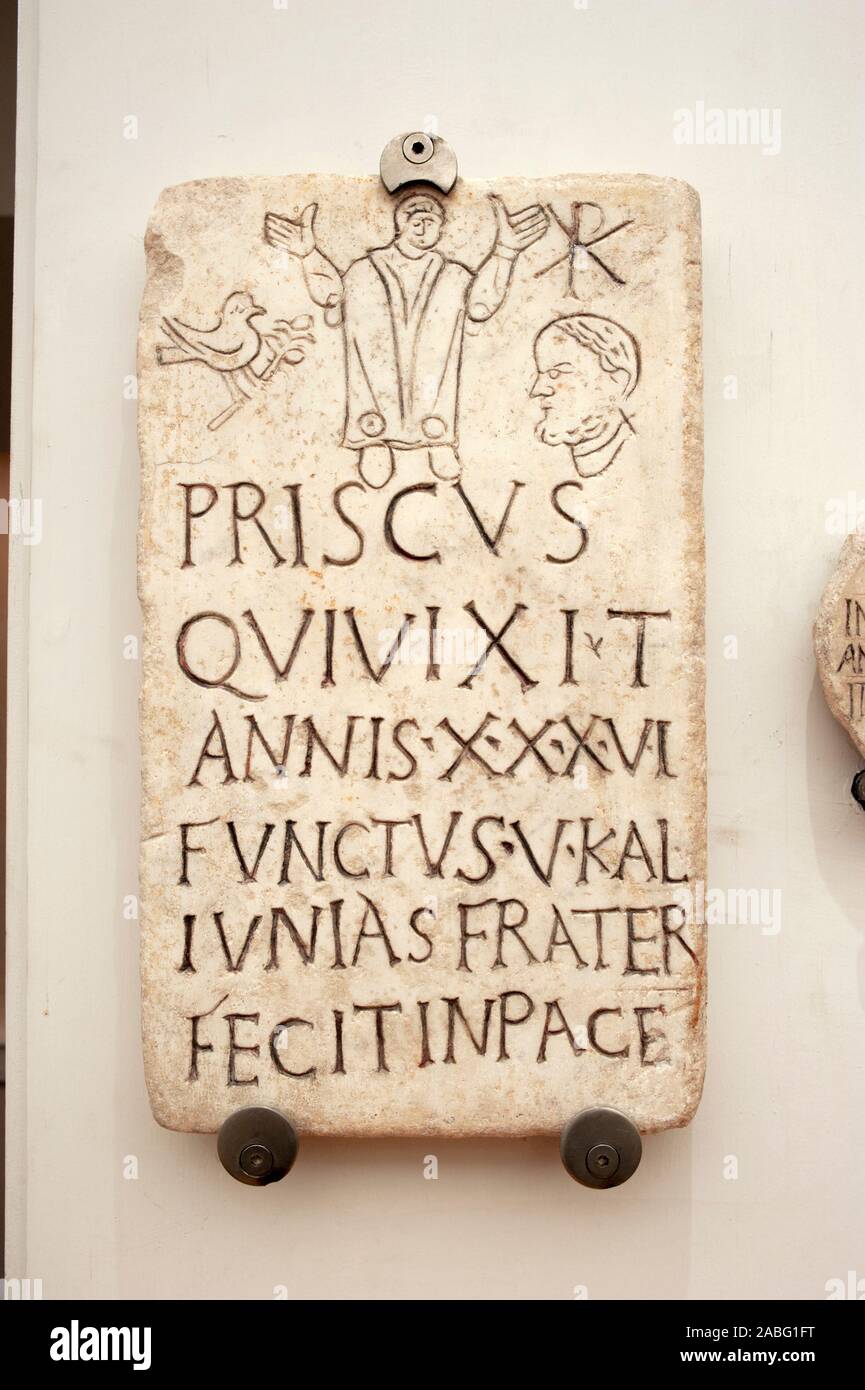 PRISCVS
QVIVIXI·T
ANNIS·X·X·X·VI
FVNCTVS·V·KAL
IVNIAS FRATER
FECIT IN PACE
IN
AN
a
alamy
alamy stock photo
2ABG1FT
www.alamy.com